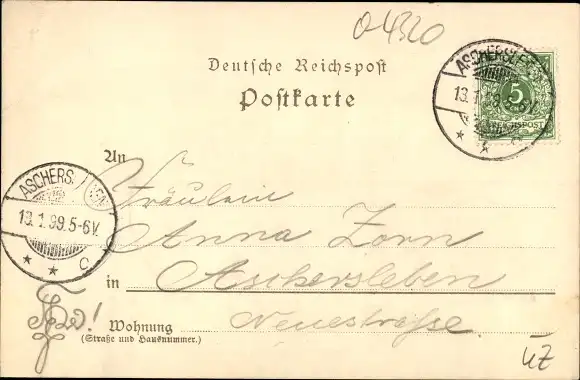 0-4320
Deutsche Reichspost
Postkarte
ASCHERSLEBEN
13.1.99.5-6V.
* * c
5
REICHSPOST
An
Fräulein
Anna Zorn
in Aschersleben
Wohnung Neuestraße.
(Straße und Hausnummer.)
ASCHERSLEBEN
13.1.99.5-6V.
* * c